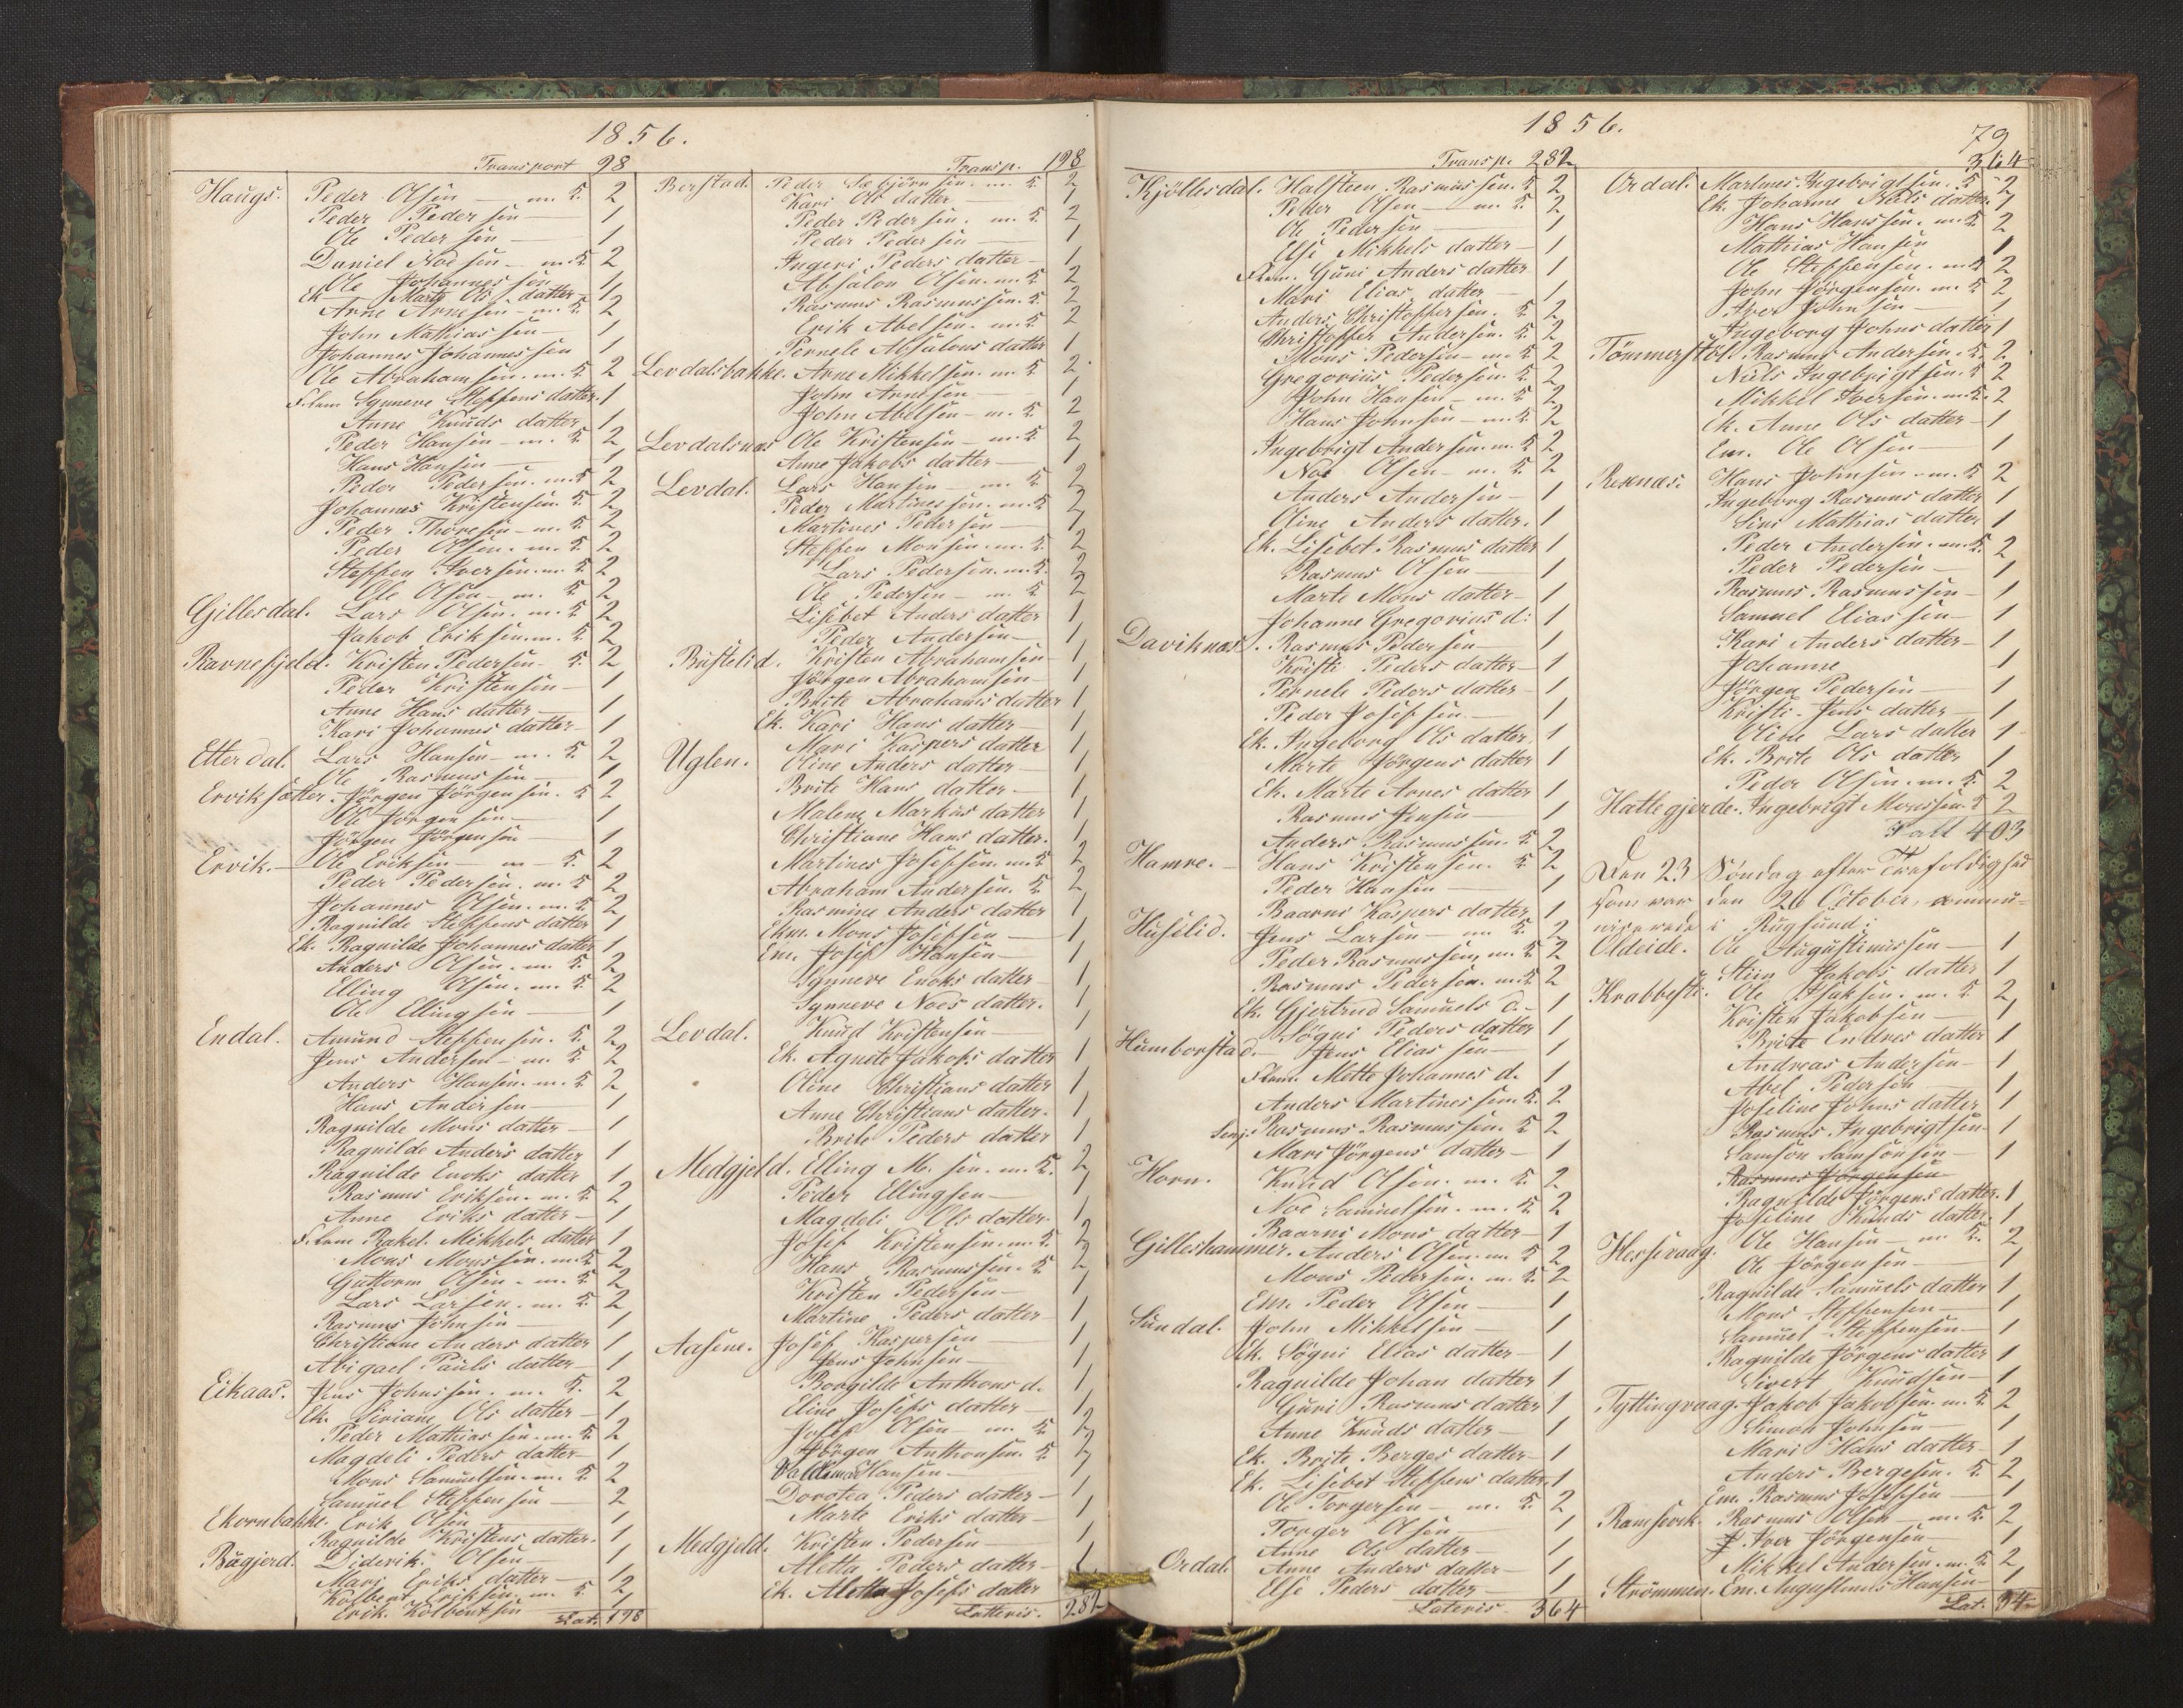 1856.
Transport 98
Haugs. Peder Olsen — m. K. 2
Peder Pedersen — 1
Ole Pedersen — 1
Daniel Noesen — m. K. 2
Ole Johannessen — 1
Ek. Marte Ols datter — 1
Arne Arnesen — m. K. 2
John Mathiassen — 1
Johannes Johannessen 1
Ole Abrahamsen. m. K. 2
F.lem Synneve Steffens datter. 1
Anne Knuds datter 1
Peder Hansen — m. K. 2
Hans Hansen — 1
Peder Pedersen. m. K. 2
Johannes Kristensen. K. 2
Peder Thoresen — m. K. 2
Peder Olsen. m. K. 2
Steffen Iversen. m. K. 2
Ole Olsen — m. K. 2
Gillesdal. Lars Olsen. m. K. 2
Jakob Eriksen. m. K. 2
Ravnefjeld. Kristen Pedersen — K. 2
Peder Kristensen — 1
Anne Hans datter — 1
Kari Johannes datter — 1
Etterdal. Lars Hansen — m. K. 2
Ole Rasmussen — 1
Erviksætter. Jörgen Jörgensen. K. 2
Ole Jörgensen — 1
Jörgen Jörgensen — 1
Ervik. — Ole Eriksen — m — K. 2
Peder Pedersen. m. K. 2
Johannes Olsen. m. K. 2
Ragnilde Steffens datter 1
Ek. Ragnilde Johannes datter 1
Anders Olsen. m. K. 2
Elling Olsen. m. K. 2
Ole Ellingsen — 1
Endal. Amund Steffensen. K. 2
Jens Andersen — m. K. 2
Anders Hansen. m. K. 2
Hans Andersen — 1
Ragnilde Mons datter — 1
Ragnilde Anders datter 1
Ragnilde Enoks datter 1
Rasmus Eriksen. m. K. 2
Anne Eriks datter — 1
F.lem Rakel Mikkels datter 1
Mons Monssen. m. K. 2
Guttorm Olsen — m. K. 2
Lars Larsen. m. K. 2
Rasmus Johnsen — 1
Christiane Anders datter 1
Abigael Pauls datter — 1
Eikaas. Jens Johnssen. m. K. 2
Ek. Siviane Ols datter — 1
Peder Mathiassen. m. K. 2
Magdeli Peders datter — 1
Mons Samuelsen. m. K. 2
Samuel Steffensen — 2
Ekornbakke. Erik Olsen — 1
Ragnilde Kristens datter. 1
Bügjerd. Diderik Olsen — 1
Mari Eriks datter — 1
Kolbent Eriksen. m. K. 2
Erik Kolbentsen — 1
Lat. 198
Transp. 198
Berstad. Peder Sæbjörnsen. m. K. 2
Kari Ols datter — 1
Peder Pedersen. m. K. 2
Peder Pedersen — 1
Ingeri Peders datter — 1
Absalon Olsen. m. K. 2
Rasmus Rasmussen. K. 2
Erik Abelsen. m. K. 2
Pernele Absalons datter 1
Levdalsbakke. Arne Mikkelsen. m. K. 2
John Arnesen — 1
John Abelsen — m. K. 2
Levdalsnæs Ole Kristensen — m. K. 2
Anne Jakobs datter — 1
Levdal. Lars Hansen — m. K. 2
Peder Martinessen. m. K. 2
Martines Pedersen — 1
Steffen Monsen. m. K. 2
Lars Pedersen. m. K. 2
Ole Pedersen — m. K. 2
Lisebet Anders datter 1
Peder Andersen — 1
Bustelid. Kristen Abrahamsen — 1
Jörgen Abrahamsen — 1
Brite Abrahams datter 1
Ek. Kari Hans datter — 1
Mari Kaspers datter 1
Uglen. Oline Anders datter — 1
Brite Hans datter — 1
Malene Markus datter 1
Christiane Hans datter. 1
Martines Josefsen. m. K. 2
Abraham Andersen. K. 2
Rasmine Anders datter 1
Ekm. Mons Josefsen — 1
Em. Josef Hansen — 1
Synneve Enoks datter — 1
Synneve Noes datter. 1
Levdal. Knud Kristensen — 1
Ek. Agnete Jakobs datter 1
Oline Christians datter 1
Anne Christians datter. 1
Brite Peders datter 1
Medgjeld. Elling M. sen. m. K. 2
Peder Ellingsen — 1
Magdeli Ols datter. 1
Josef Kristensen. m. K. 2
Hans Rasmussen. K. 2
Kristen Pedersen — 1
Martine Peders datter 1
Aasene. Josef Kaspersen 1
Jens Johnsen — 1
Borgilde Anthons d. 1
Eline Josefs datter — 1
Josef Olsen — m. K. 2
Jörgen Anthonsen. K. 2
Valdemar Hansen — 1
Dorotea Peders datter — 1
Marte Eriks datter — 1
Medgjeld. Kristen Pedersen — 1
Aletta Peders datter — 1
Ek. Aletta Josefs datter 1
Latteris. 282
1856.
79
Transp. 282
Kjöllesdal. Halsteen Rasmussen. K. 2
Peder Olsen — m. K. 2
Ole Pedersen — 1
Else Mikkels datter — 1
F.lem. Guni Anders datter 1
Mari Elias datter — 1
Anders Christoffersen. K. 2
Christoffer Andersen. K. 2
Mons Pedersen — m. K. 2
Gregorius Pedersen. K. 2
John Hansen — m. K. 2
Hans Johnsen — m. K. 2
Ingebrigt Andersen. m. K. 2
Noe Olsen — m. K. 2
Anders Andersen — 1
Oline Anders datter. 1
Ek. Lisebet Rasmus datter 1
Rasmus Olsen — 1
Marte Mons datter — 1
Johanne Gregorius d: 1
Daviknæs. Rasmus Pedersen — 1
Kristi Peders datter — 1
Pernele Peders datter — 1
Peder Josefsen — 1
Ek. Ingeborg Ols datter. 1
Marte Jörgens datter 1
Ek. Marte Arnes datter 1
Rasmus Jensen — 1
Anders Rasmussen. K. 2
Hamre. — Hans Kristensen. K. 2
Peder Hansen — 1
Baarni Kaspers datter 1
Huselid. Jens Larsen — m. K. 2
Peder Rasmussen. m. K. 2
Rasmus Pedersen. m. K. 2
Ek. Gjertrud Samuels d. — 1
Sögni Peders datter 1
Humborstad. — Jens Eliassen — 1
F.lem. Mette Johannes d. 1
Anders Martinessen. K. 2
Rasmus Rasmussen. K. 2
Mari Jörgens datter — 1
Horn. Knud Olsen. m. K. 2
Noe Samuelsen. m. K. 2
Baarni Mons datter — 1
Gilleshammer. Anders Olsen. m. K. 2
Mons Pedersen. m. K. 2
Em. Peder Olsen — 1
Sündal. John Mikkelsen — 1
Ek. Sögni Elias datter — 1
Ragnilde Johan datter 1
Guri Rasmus datter 1
Anne Knuds datter — 1
Ek. Brite Berges datter — 1
Ek. Lisebet Steffens datter. 1
Ole Torgersen — m. K. 2
Torger Olsen — 1
Anne Ols datter — 1
Ordal. Anne Anders datter — 1
Else Peders datter — 1
Lateris. 364
364
Ordal. Martines Ingebrigtsen. K. 2
Ek. Johanne Pauls datter. 1
Hans Hanssen. m. K. 2
Mathias Hansen 1
Ole Steffensen. m. K. 2
John Jörgensen. m. K. 2
Iver Johnsen — 1
Ingeborg Johns datter 1
Tömmerstöl. Rasmus Andersen. K. 2
Niels Ingebrigtsen. K. 2
Mikkel Iversen. m. K. 2
Ek. Anne Ols datter — 1
Em. Ole Olsen — 1
Rexnæs: Hans Johnsen — m. K. 2
Ingeborg Rasmus datter 1
Sini Mathias datter 1
Peder Andersen. m. K. 2
Peder Pedersen — 1
Rasmus Rasmussen — 1
Samuel Eliassen — 1
Kari Anders datter — 1
Johanne — 1
Jörgen Pedersen — 1
Kristi. Jens datter — 1
Oline Lars datter 1
Ek. Brite Ols datter 1
Peder Olsen. m. K. 2
Hatlegjerde. Ingebrigt Monssen. K. 2
Tall 403
Den 23 Söndag efter Trefoldighed
som var den 26 October, commu-
nicerede i Rugsund:
Oldeide. Ole Augustinussen — 1
Stiin Jakobs datter 1
Krabbesti. Ole Isaksen. m. K. 2
Kristen Jakobsen — 1
Brite Endres datter 1
Andreas Andersen — 1
Abel Pedersen — 1
Joseline Johns datter 1
Rasmus Ingebrigtsen — 1
Samson Samsonsen — 1
Rasmus Jörgensen
Ragnilde Jörgens datter. 1
Joseline Knuds datter. 1
Hessevaag. Ole Hansen — m. K. 2
Ole Jörgensen — 1
Ragnilde Samuels datter 1
Mons Steffensen — 1
Samuel Steffensen — 1
Ragnilde Jörgens datter 1
Sivert Knudsen — 1
Tyttingvaag. Jakob Jakobsen. m. K. 2
Simon Johnsen 1
Mari Hans datter — 1
Anders Bergesen. K. 2
Em. Rasmus Josefsen — 1
Ramsvik. Rasmus Olsen — m. K. 2
Iver Jörgensen — 1
Mikkel Andersen. m. K. 2
Strömmen. Em. Augustinus Hansen — 1
Lat. 34